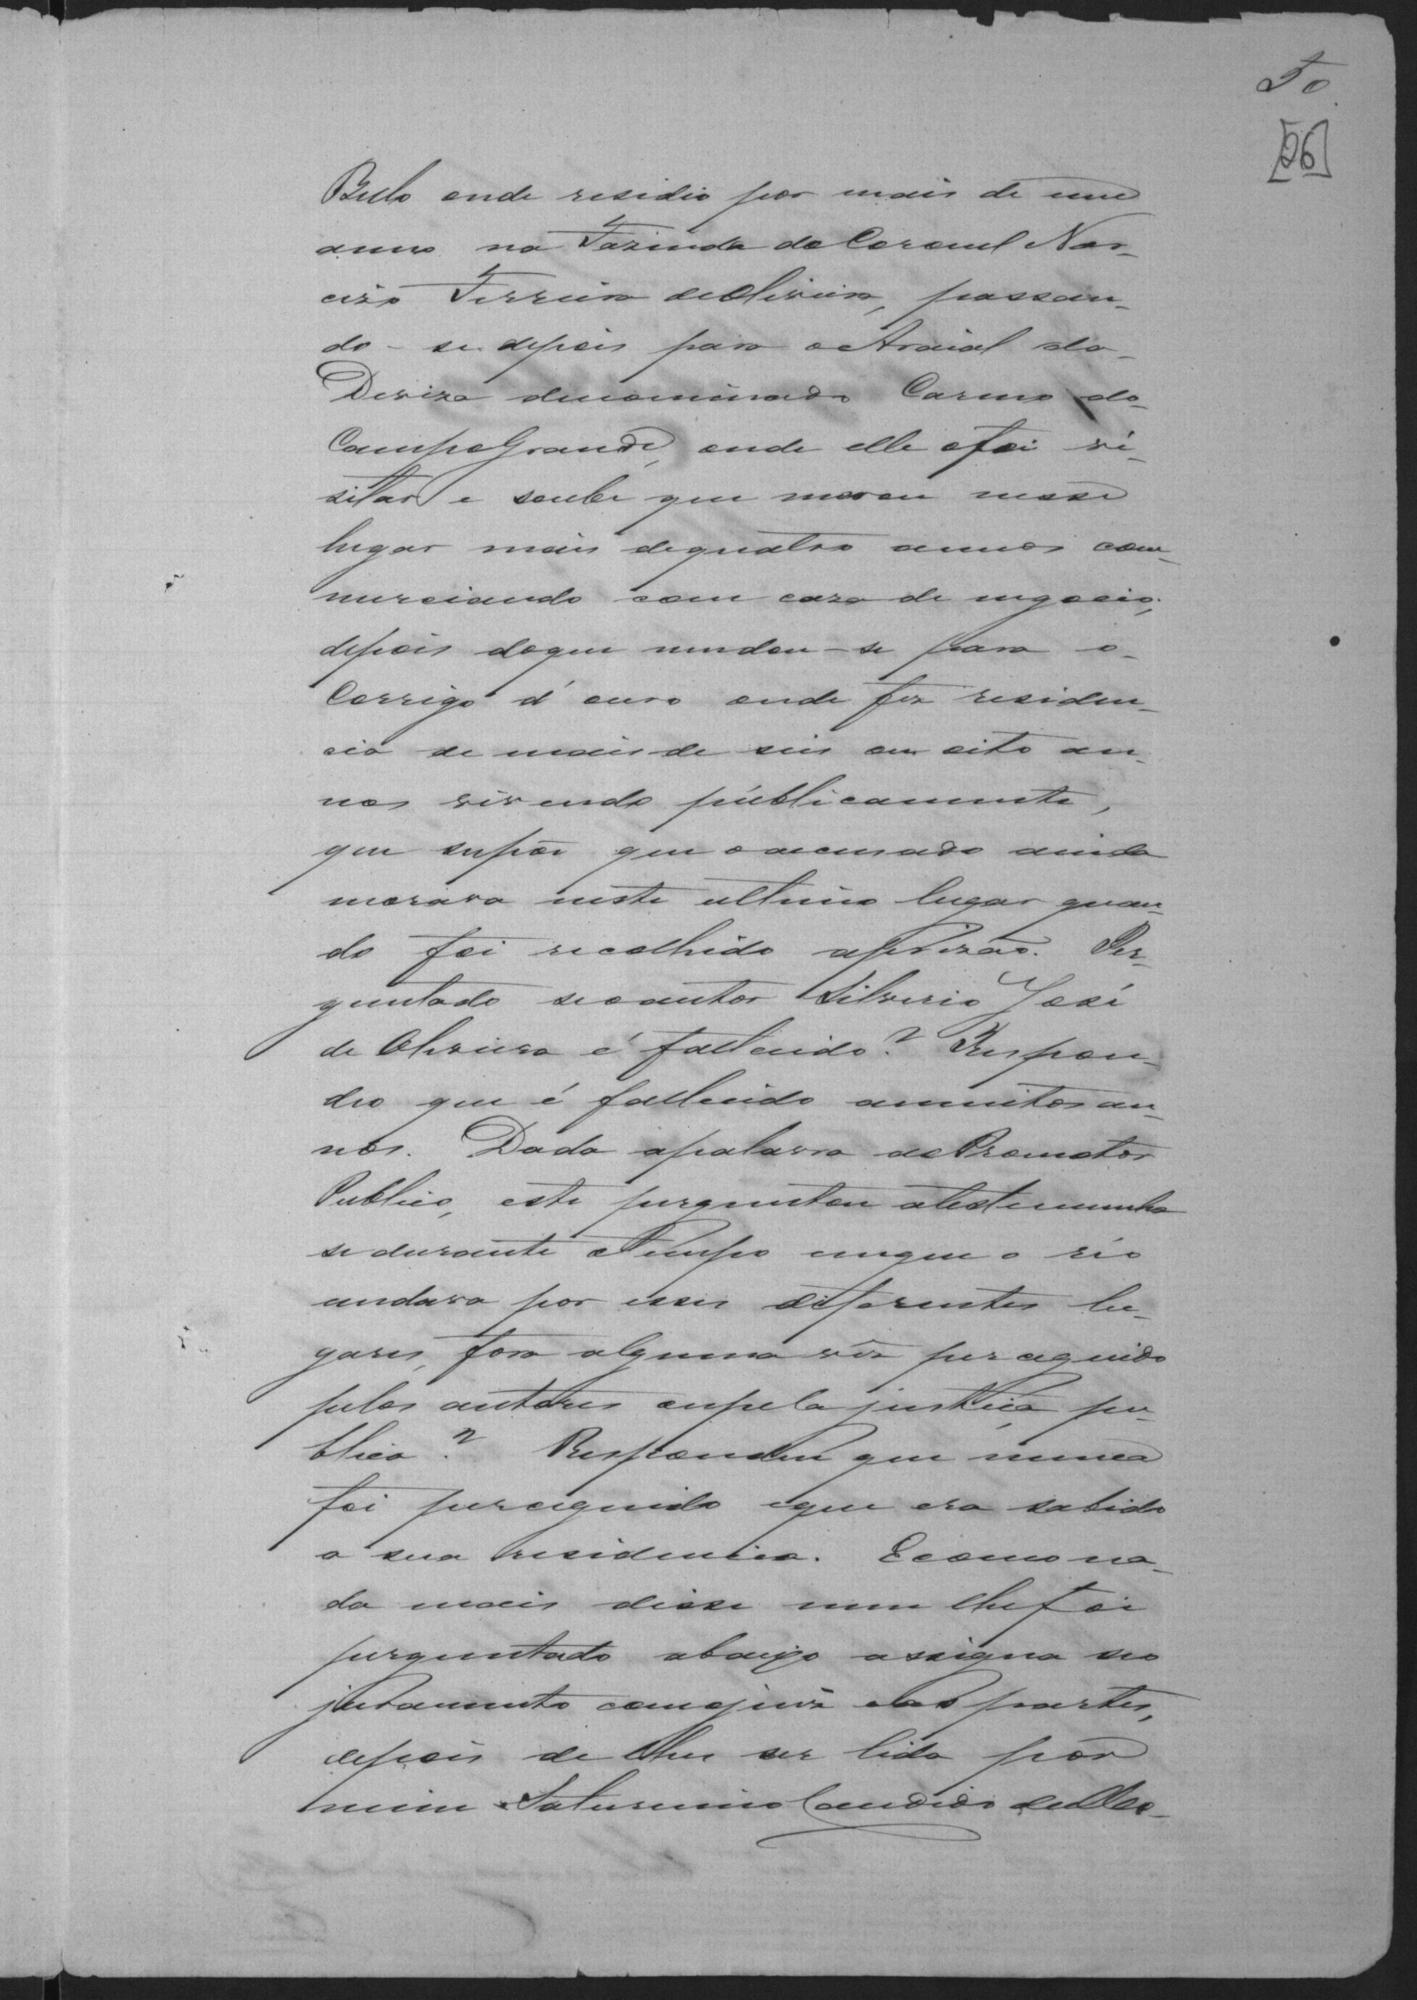 50
[56]
Bello onde residio por mais de um
anno na Fazenda do Coronel Nar-
cizo Ferreira de Oliveira, passan-
do-se depois para o Araial da
Deviza denominado Carmo do
Campo Grande, onde elle o foi vi-
zitar e soube que morou nesse
lugar mais de quatro annos com-
merciando com caza de negocio;
depois do que mudou-se para o
Corrigo d'ouro onde fez residen-
cia de mais de seis ou oito an-
nos vivendo públicamente,
que supõe que o accusado ainda
morava neste ultimo lugar quan-
do foi recolhido a prizão. Per-
guntado se o autor Silverio José
de Oliveira é fallecido? Respon-
deo que é fallecido a muitos an-
nos. Dada a palavra ao Promotor
Publico, este perguntou a testemunha
se durante o tempo em que o réo
andava por esses differentes lu-
gares, fora alguma vêz perceguido
pelos autores ou pela justiça pu-
blica? Respondeu que nunca
foi perceguido e que era sabida
a sua residencia. E como na-
da mais disse nem lhe foi
perguntado abaixo assigna seo
juramento com o juiz e as partes,
depois de lhe ser lido por
mim Saturnino Candido de